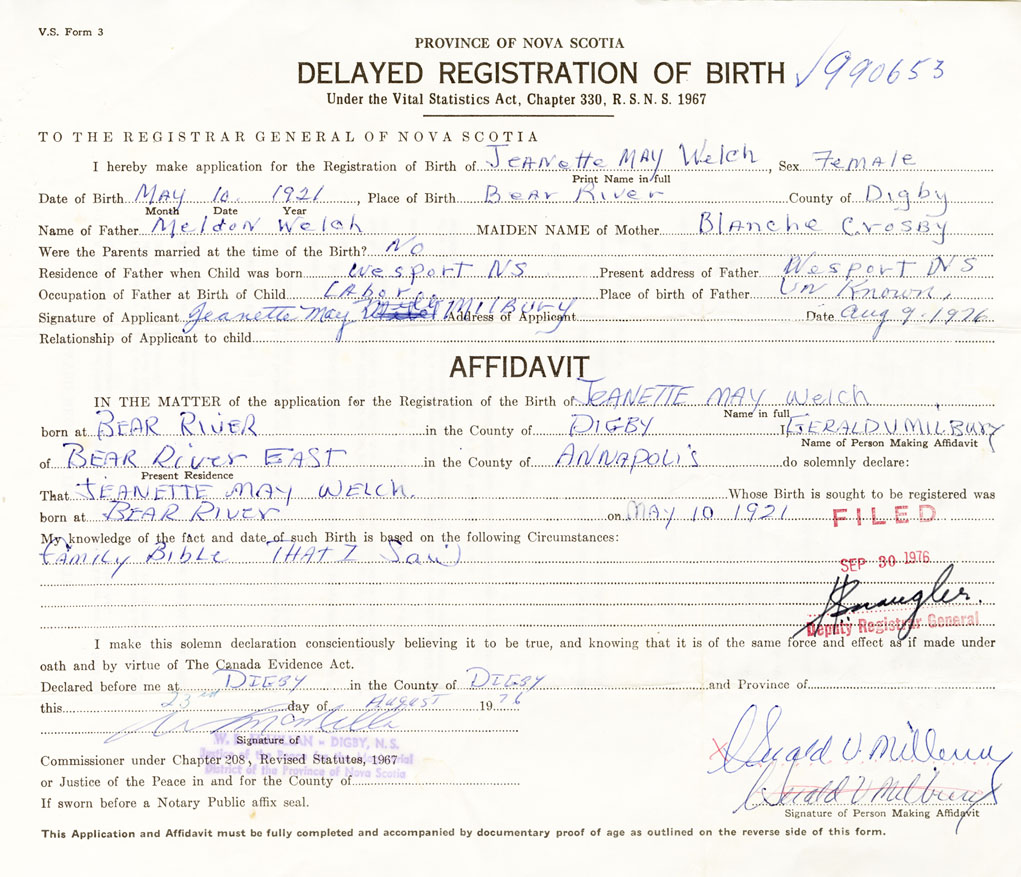 V.S. Form 3
PROVINCE OF NOVA SCOTIA
DELAYED REGISTRATION OF BIRTH 990653
Under the Vital Statistics Act, Chapter 330, R.S.N.S. 1967
TO THE REGISTRAR GENERAL OF NOVA SCOTIA
I hereby make application for the Registration of Birth of JEANette MAY Welch, Sex Female
Print Name in full
Date of Birth MAY 10. 1921, Place of Birth Bear River County of Digby
Month Date Year
Name of Father Meldon Welch MAIDEN NAME of Mother Blanche Crosby
Were the Parents married at the time of the Birth? No
Residence of Father when Child was born Wesport NS Present address of Father Wesport NS
Occupation of Father at Birth of Child Labor Place of birth of Father Un Known,
Signature of Applicant Jeanette May MILBURY Address of Applicant Date Aug 9. 1976
Relationship of Applicant to child
AFFIDAVIT
IN THE MATTER of the application for the Registration of the Birth of JEANETTE MAY Welch
Name in full
born at BEAR RIVER in the County of DIGBY I GERALD V MILBURY
Name of Person Making Affidavit
of BEAR River EAST in the County of ANNAPOLIS do solemnly declare:
Present Residence
That JEANETTE MAY WELCH. Whose Birth is sought to be registered was
born at BEAR RIVER on MAY 10 1921
FILED
My knowledge of the fact and date of such Birth is based on the following Circumstances:
Family Bible THAT I Saw
SEP 30 1976
Deputy Registrar General
I make this solemn declaration conscientiously believing it to be true, and knowing that it is of the same force and effect as if made under
oath and by virtue of The Canada Evidence Act.
Declared before me at DIGBY in the County of DIGBY and Province of
this 23rd day of August 1976
Signature of
DIGBY, N.S.
Commissioner under Chapter 208, Revised Statutes, 1967
District of the Province of Nova Scotia
or Justice of the Peace in and for the County of
Gerald V. Milbury
If sworn before a Notary Public affix seal.
Gerald V Milbury
Signature of Person Making Affidavit
This Application and Affidavit must be fully completed and accompanied by documentary proof of age as outlined on the reverse side of this form.